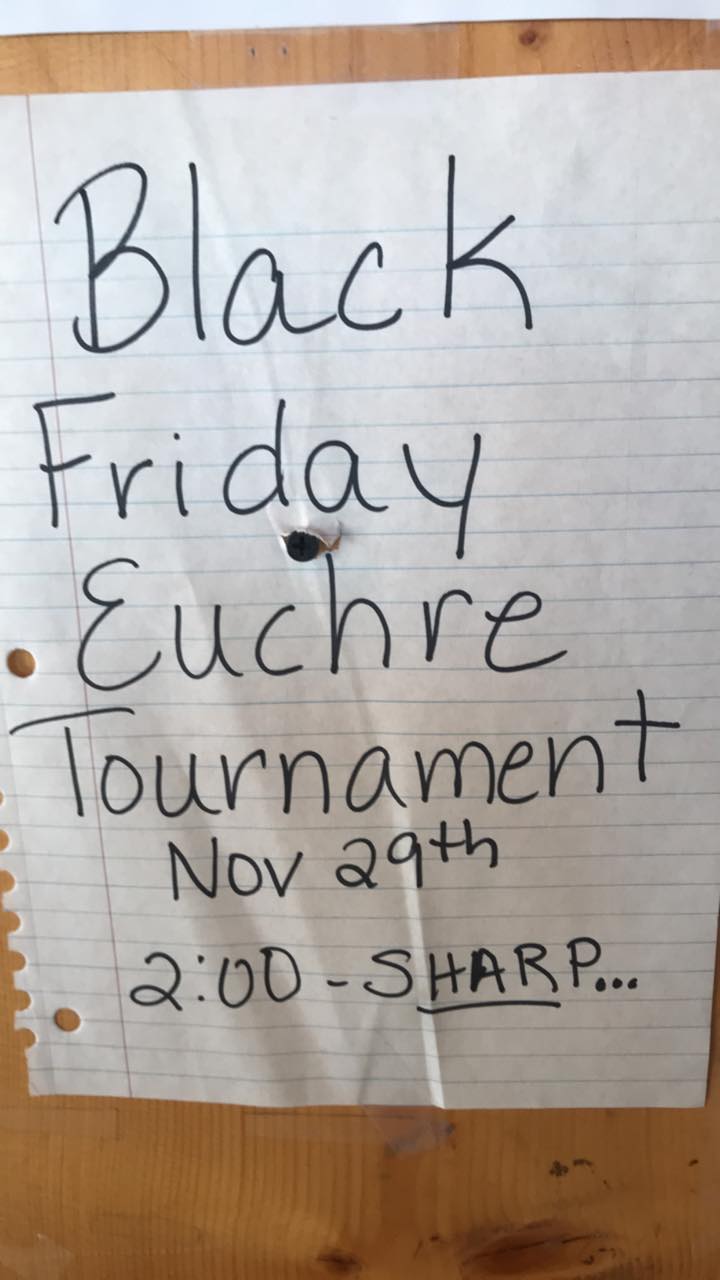 Black
Friday
Euchre
Tournament
Nov 29th
2:00 - SHARP...